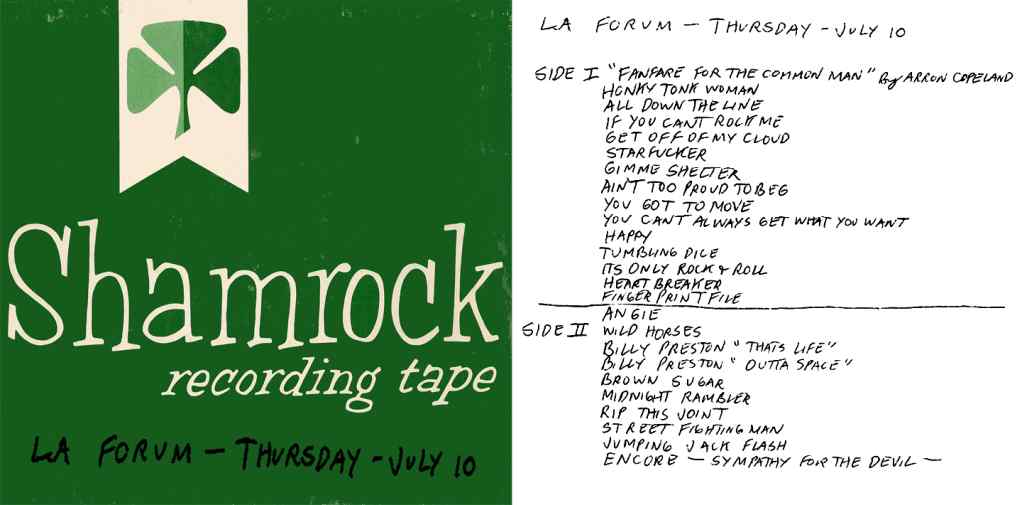 Shamrock
recording tape
LA FORUM — THURSDAY - JULY 10
LA FORUM — THURSDAY - JULY 10
SIDE I "FANFARE FOR THE COMMON MAN" By ARRON COPELAND
HONKY TONK WOMAN
ALL DOWN THE LINE
IF YOU CANT ROCK ME
GET OFF OF MY CLOUD
STARFUCKER
GIMME SHELTER
AIN'T TOO PROUD TO BEG
YOU GOT TO MOVE
YOU CANT ALWAYS GET WHAT YOU WANT
HAPPY
TUMBLING DICE
ITS ONLY ROCK & ROLL
HEART BREAKER
FINGER PRINT FILE
ANGIE
SIDE II WILD HORSES
BILLY PRESTON "THATS LIFE"
BILLY PRESTON "OUTTA SPACE"
BROWN SUGAR
MIDNIGHT RAMBLER
RIP THIS JOINT
STREET FIGHTING MAN
JUMPING JACK FLASH
ENCORE — SYMPATHY FOR THE DEVIL —